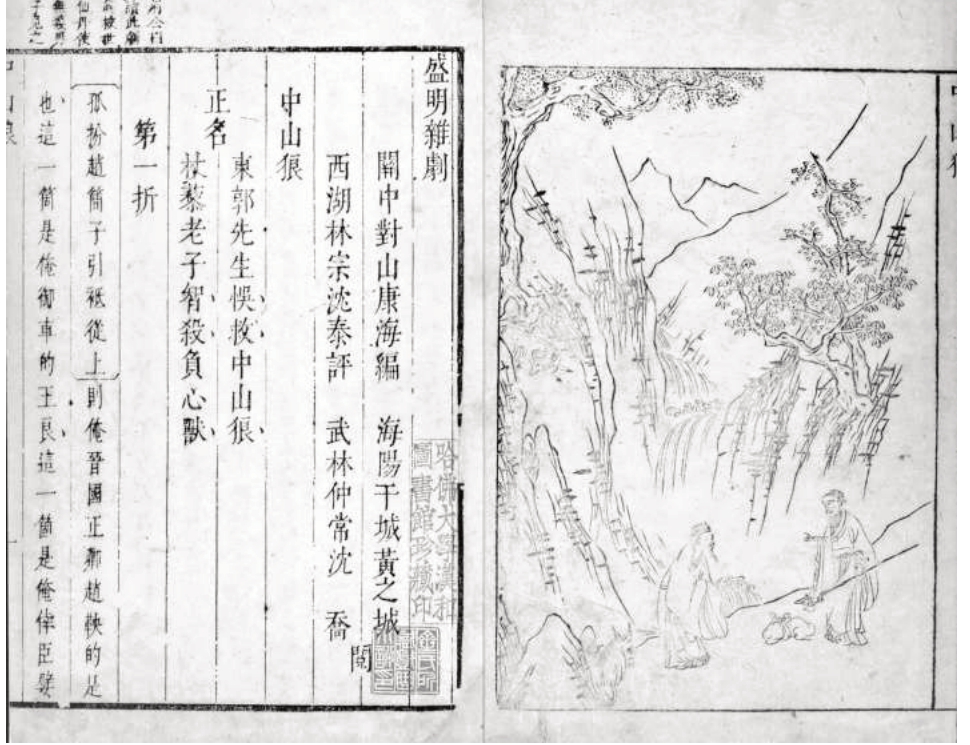 中山狼
盛明雜劇
關中對山康海編　海陽于城黃之城
西湖林宗沈泰評　武林仲常沈　喬　閱
中山狼
正名
東郭先生悞救中山狼
杖藜老子智殺負心獸
第一折
孤扮趙簡子引祗從上則俺晉國正卿趙鞅的是
也這一箇是俺御車的王良這一箇是俺倖臣嬖
哈佛大學漢和
圖書館珍藏印